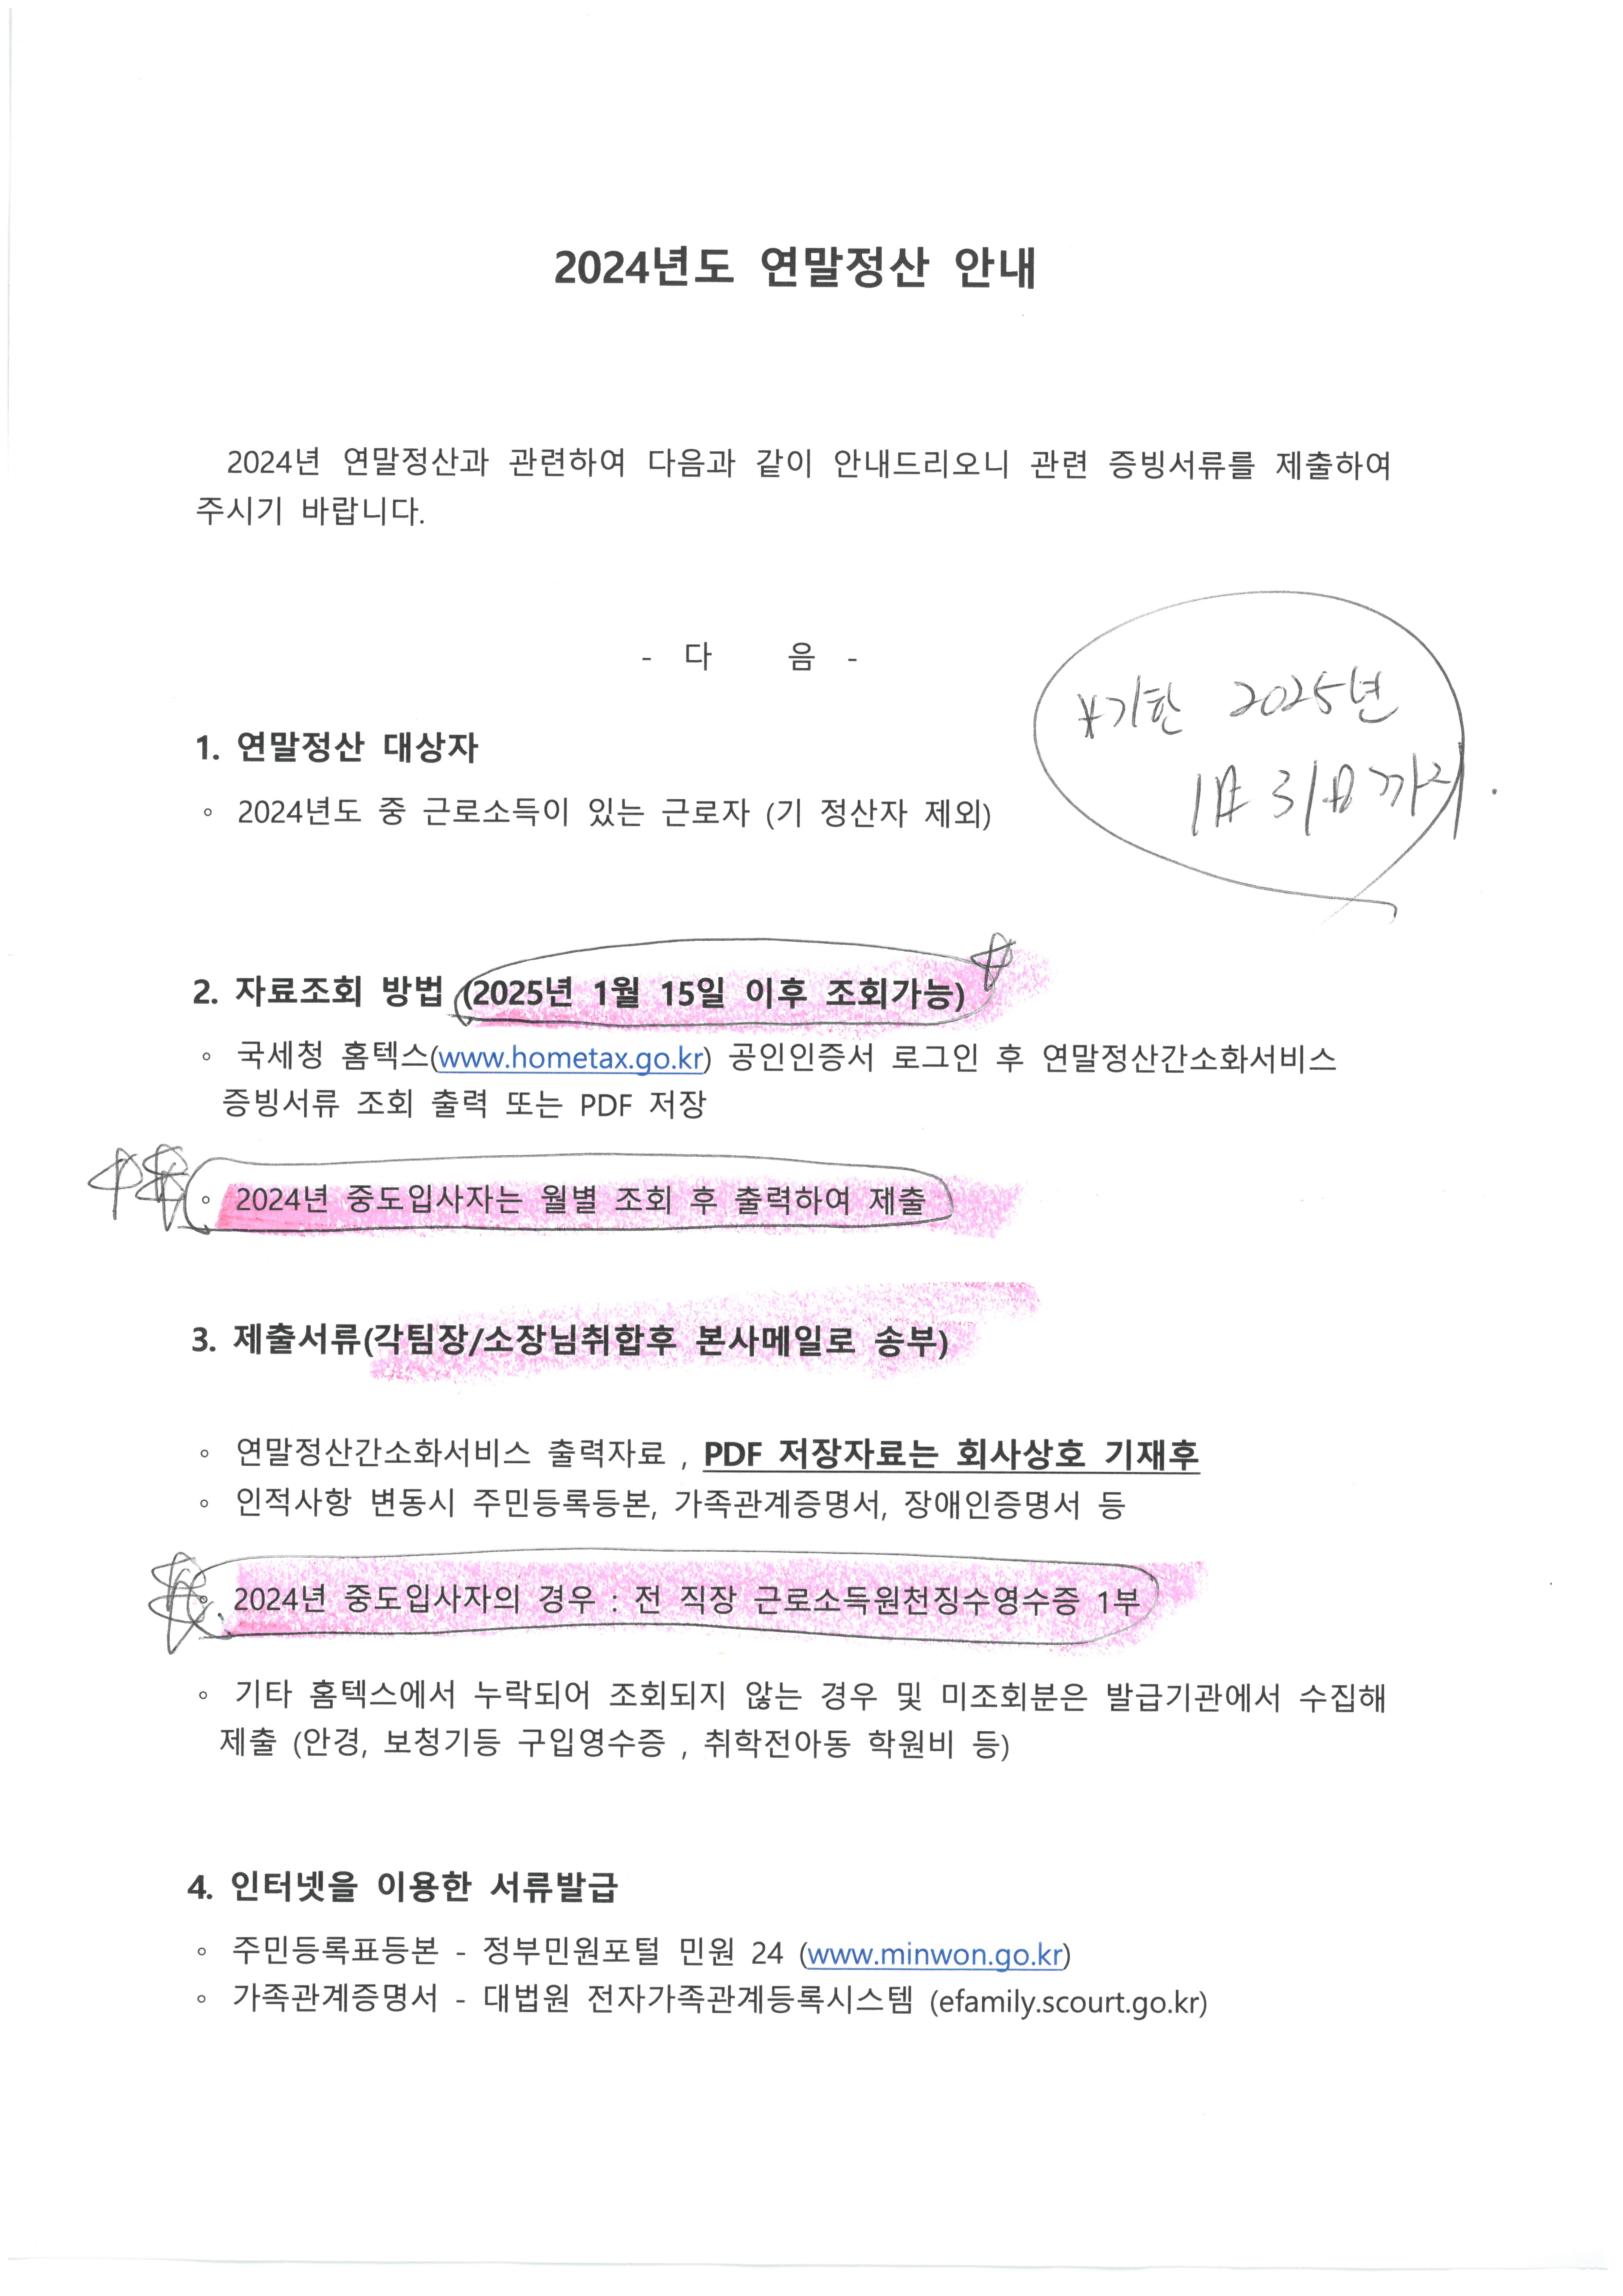 2024년도 연말정산 안내
2024년 연말정산과 관련하여 다음과 같이 안내드리오니 관련 증빙서류를 제출하여
주시기 바랍니다.
- 다 음 -
*기한 2025년
1月 31日까지.
1. 연말정산 대상자
◦ 2024년도 중 근로소득이 있는 근로자 (기 정산자 제외)
2. 자료조회 방법 (2025년 1월 15일 이후 조회가능)
◦ 국세청 홈텍스(www.hometax.go.kr) 공인인증서 로그인 후 연말정산간소화서비스
증빙서류 조회 출력 또는 PDF 저장
◦ 2024년 중도입사자는 월별 조회 후 출력하여 제출
3. 제출서류(각팀장/소장님취합후 본사메일로 송부)
◦ 연말정산간소화서비스 출력자료 , PDF 저장자료는 회사상호 기재후
◦ 인적사항 변동시 주민등록등본, 가족관계증명서, 장애인증명서 등
◦ 2024년 중도입사자의 경우 : 전 직장 근로소득원천징수영수증 1부
◦ 기타 홈텍스에서 누락되어 조회되지 않는 경우 및 미조회분은 발급기관에서 수집해
제출 (안경, 보청기등 구입영수증 , 취학전아동 학원비 등)
4. 인터넷을 이용한 서류발급
◦ 주민등록표등본 - 정부민원포털 민원 24 (www.minwon.go.kr)
◦ 가족관계증명서 - 대법원 전자가족관계등록시스템 (efamily.scourt.go.kr)